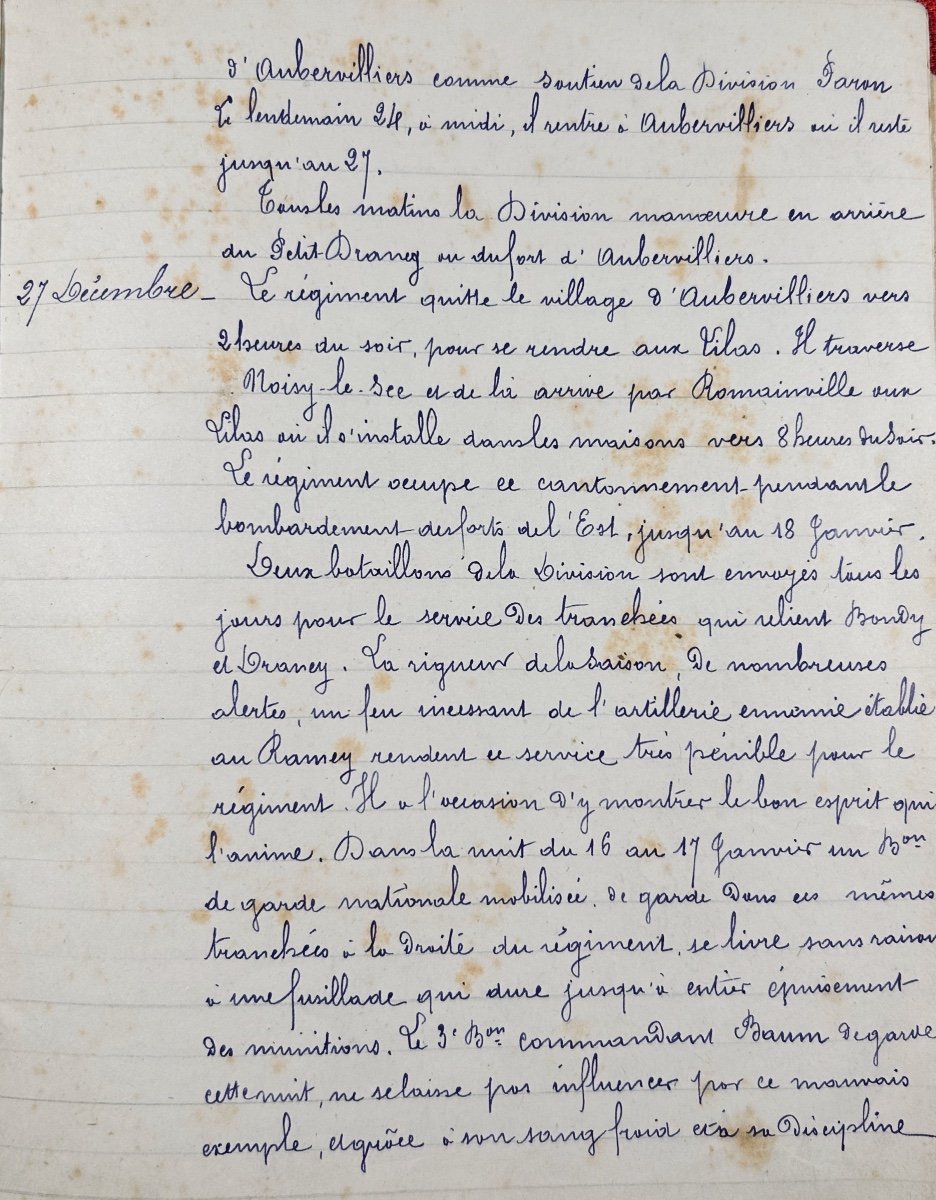 d'Aubervilliers comme soutien de la Division Faron
Le lendemain 24, à midi, il rentre à Aubervilliers où il reste
jusqu'au 27.
Tous les matins la Division manœuvre en arrière
du Petit-Drancy ou du fort d'Aubervilliers.
27 Décembre_ Le régiment quitte le village d'Aubervilliers vers
2 heures du soir, pour se rendre aux Lilas. Il traverse
Noisy-le-Sec et de là arrive par Romainville aux
Lilas où il s'installe dans les maisons vers 8 heures du soir.
Le régiment occupe ce cantonnement pendant le
bombardement des forts de l'Est, jusqu'au 18 Janvier.
Deux bataillons de la Division sont envoyés tous les
jours pour le service des tranchées qui relient Bondy
et Drancy. La rigueur de la saison, de nombreuses
alertes, un feu incessant de l'artillerie ennemie établie
au Ramey rendent ce service très pénible pour le
régiment. Il a l'occasion d'y montrer le bon esprit qui
l'anime. Dans la nuit du 16 au 17 Janvier un Bon
de garde nationale mobilisée, de garde dans ces mêmes
tranchées à la droite du régiment, se livre sans raison
à une fusillade qui dure jusqu'à entier épuisement
des munitions. Le 3e Bon commandant Baum de garde
cette nuit, ne se laisse pas influencer par ce mauvais
exemple, et grâce à son sang froid et à sa discipline